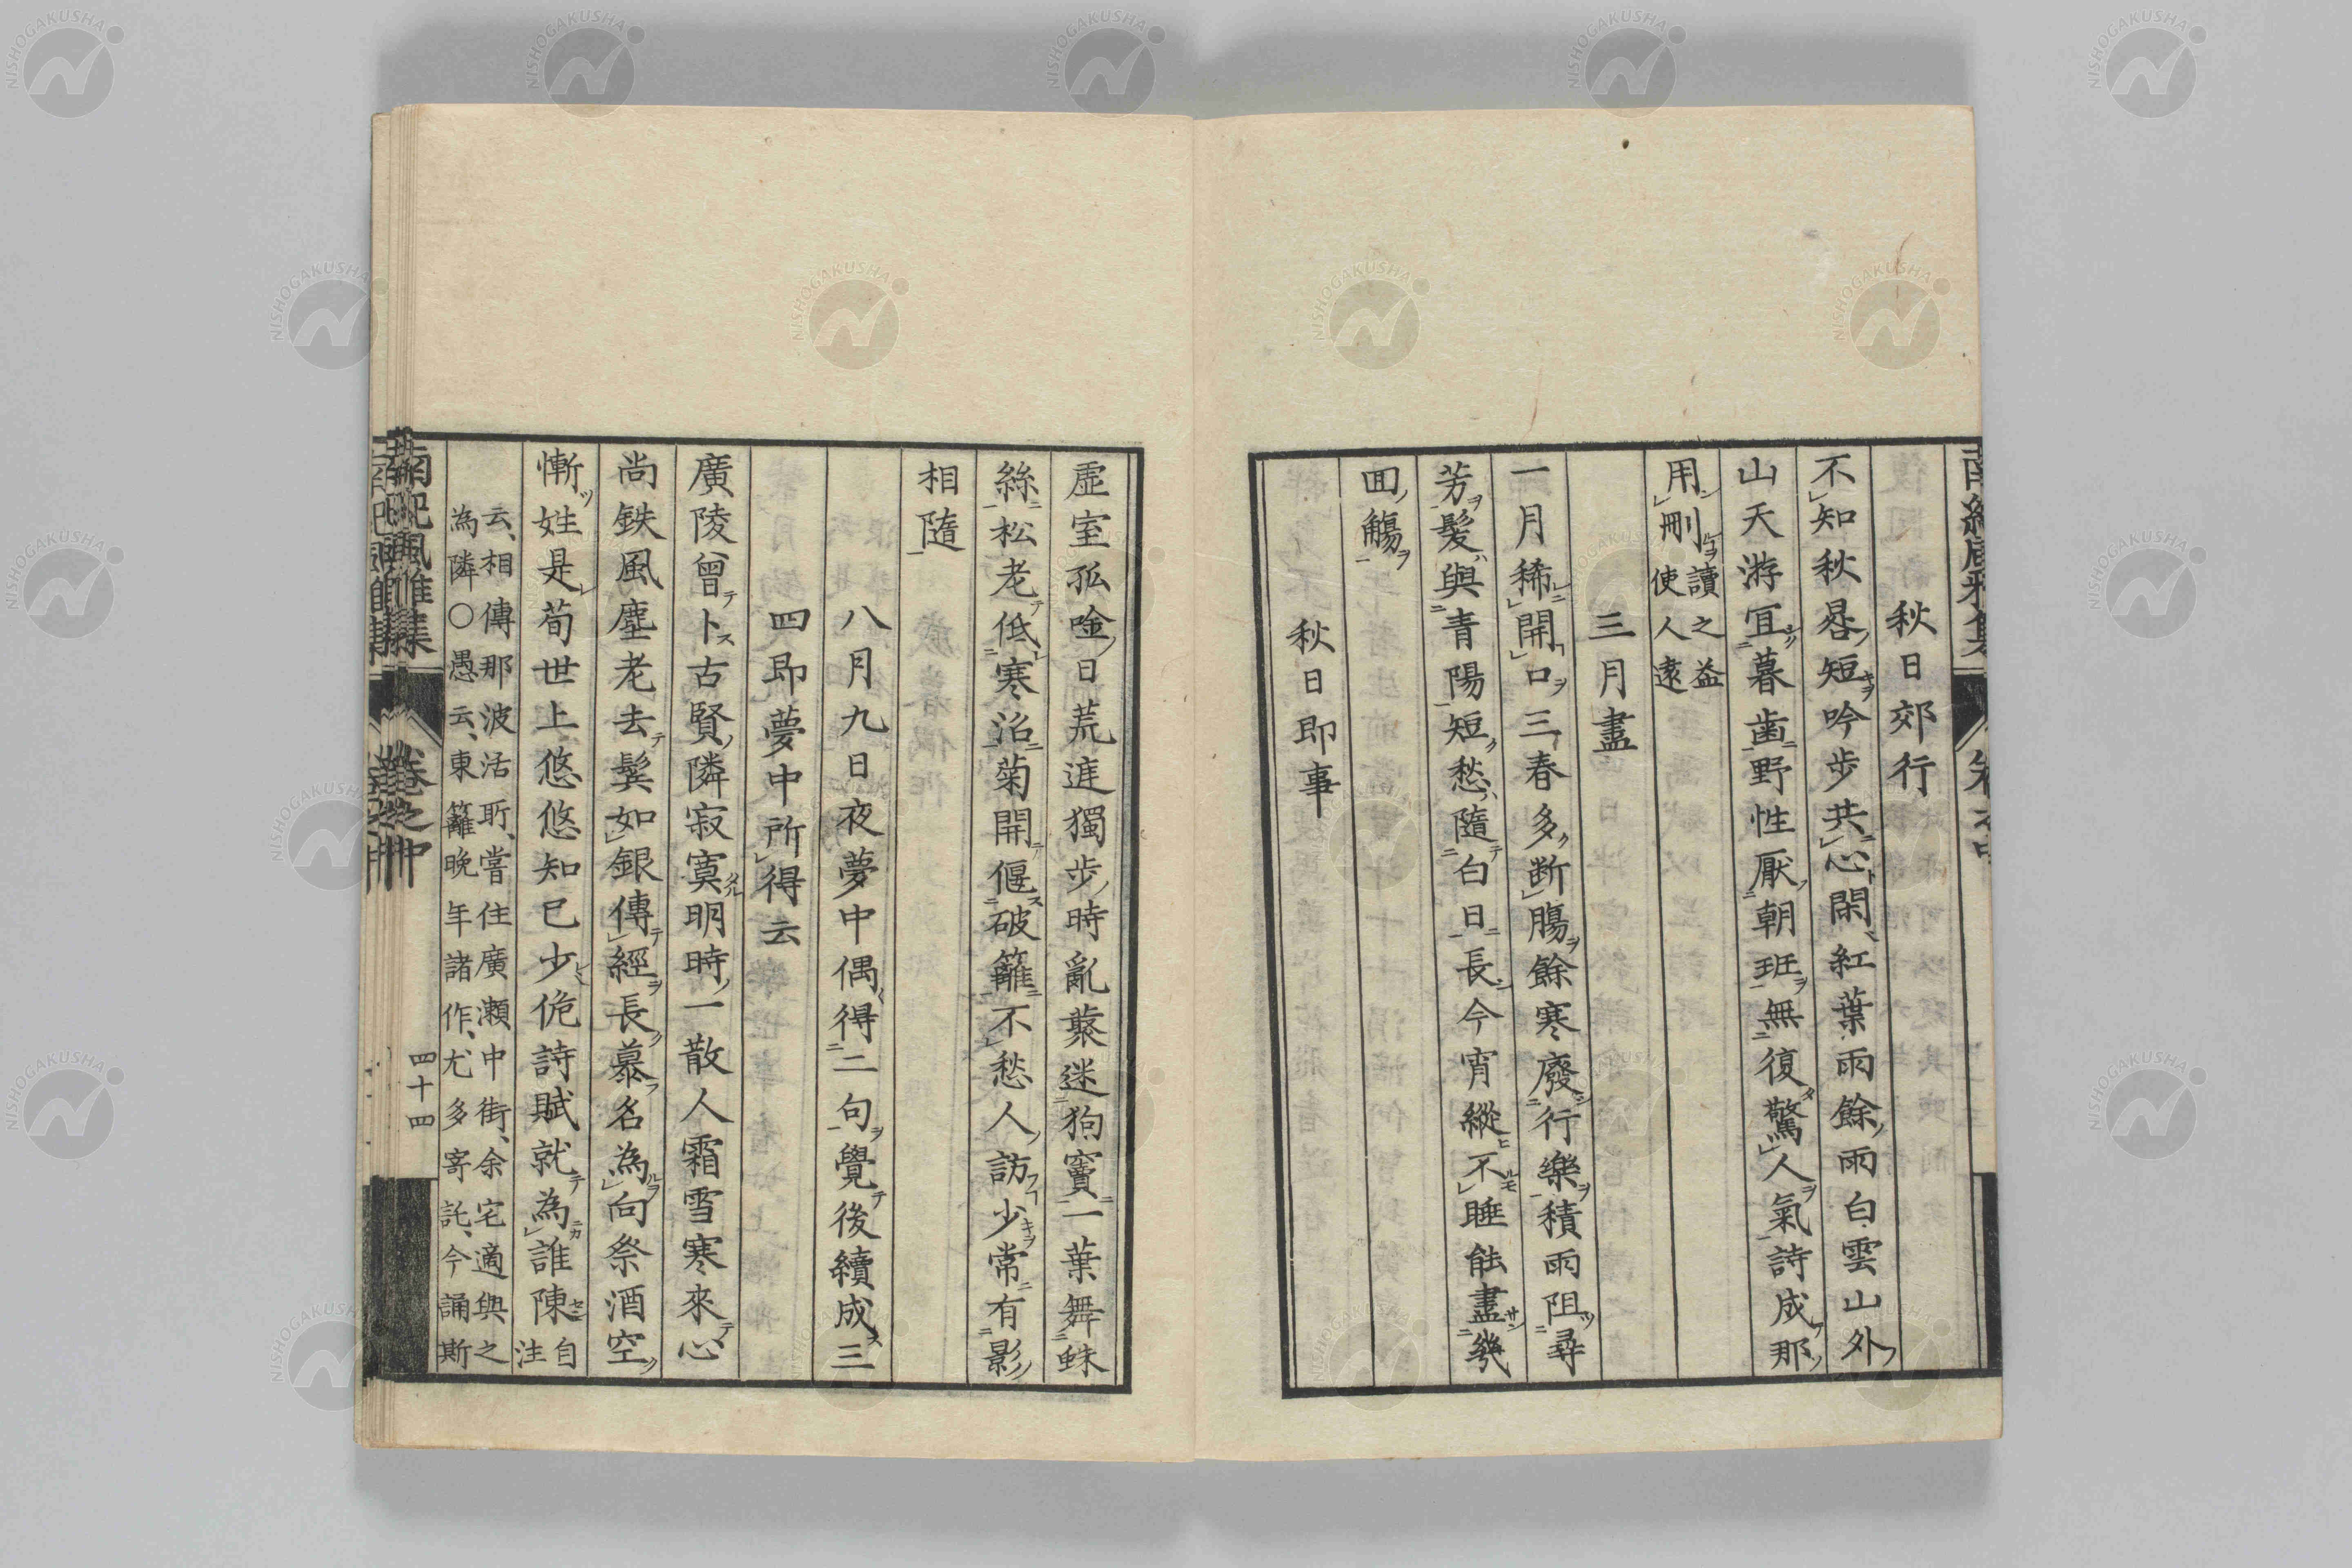 秋日郊行
不知秋晷短吟步共心閑紅葉雨餘雨白雲山外
山天游宜暮齒野性厭朝班無復驚人氣詩成那
用刪讀之益
使人遠
三月盡
一月稀開口三春多斷腸餘寒廢行樂積雨阻尋
芳髮與青陽短愁隨白日長今宵縱不睡能盡幾
回觴
秋日即事
虛室孤唫日荒逕獨步時亂藂迷狗竇一葉舞蛛
絲松老低寒沼菊開偃破籬不愁人訪少常有影
相隨
八月九日夜夢中偶得二句覺後續成三
四即夢中所得云
廣陵曾卜古賢隣寂寞明時一散人霜雪寒來心
尚鉄風塵老去鬂如銀傳經長慕名為向祭酒空
慚姓是荀世上悠悠知已少佹詩賦就為誰陳自注
云相傳那波活所嘗住廣瀬中街余宅適與之
為隣〇愚云東籬晚年諸作尤多寄託今誦斯
南紀風雅集
卷之中
四十四
NISHOGAKUSHA